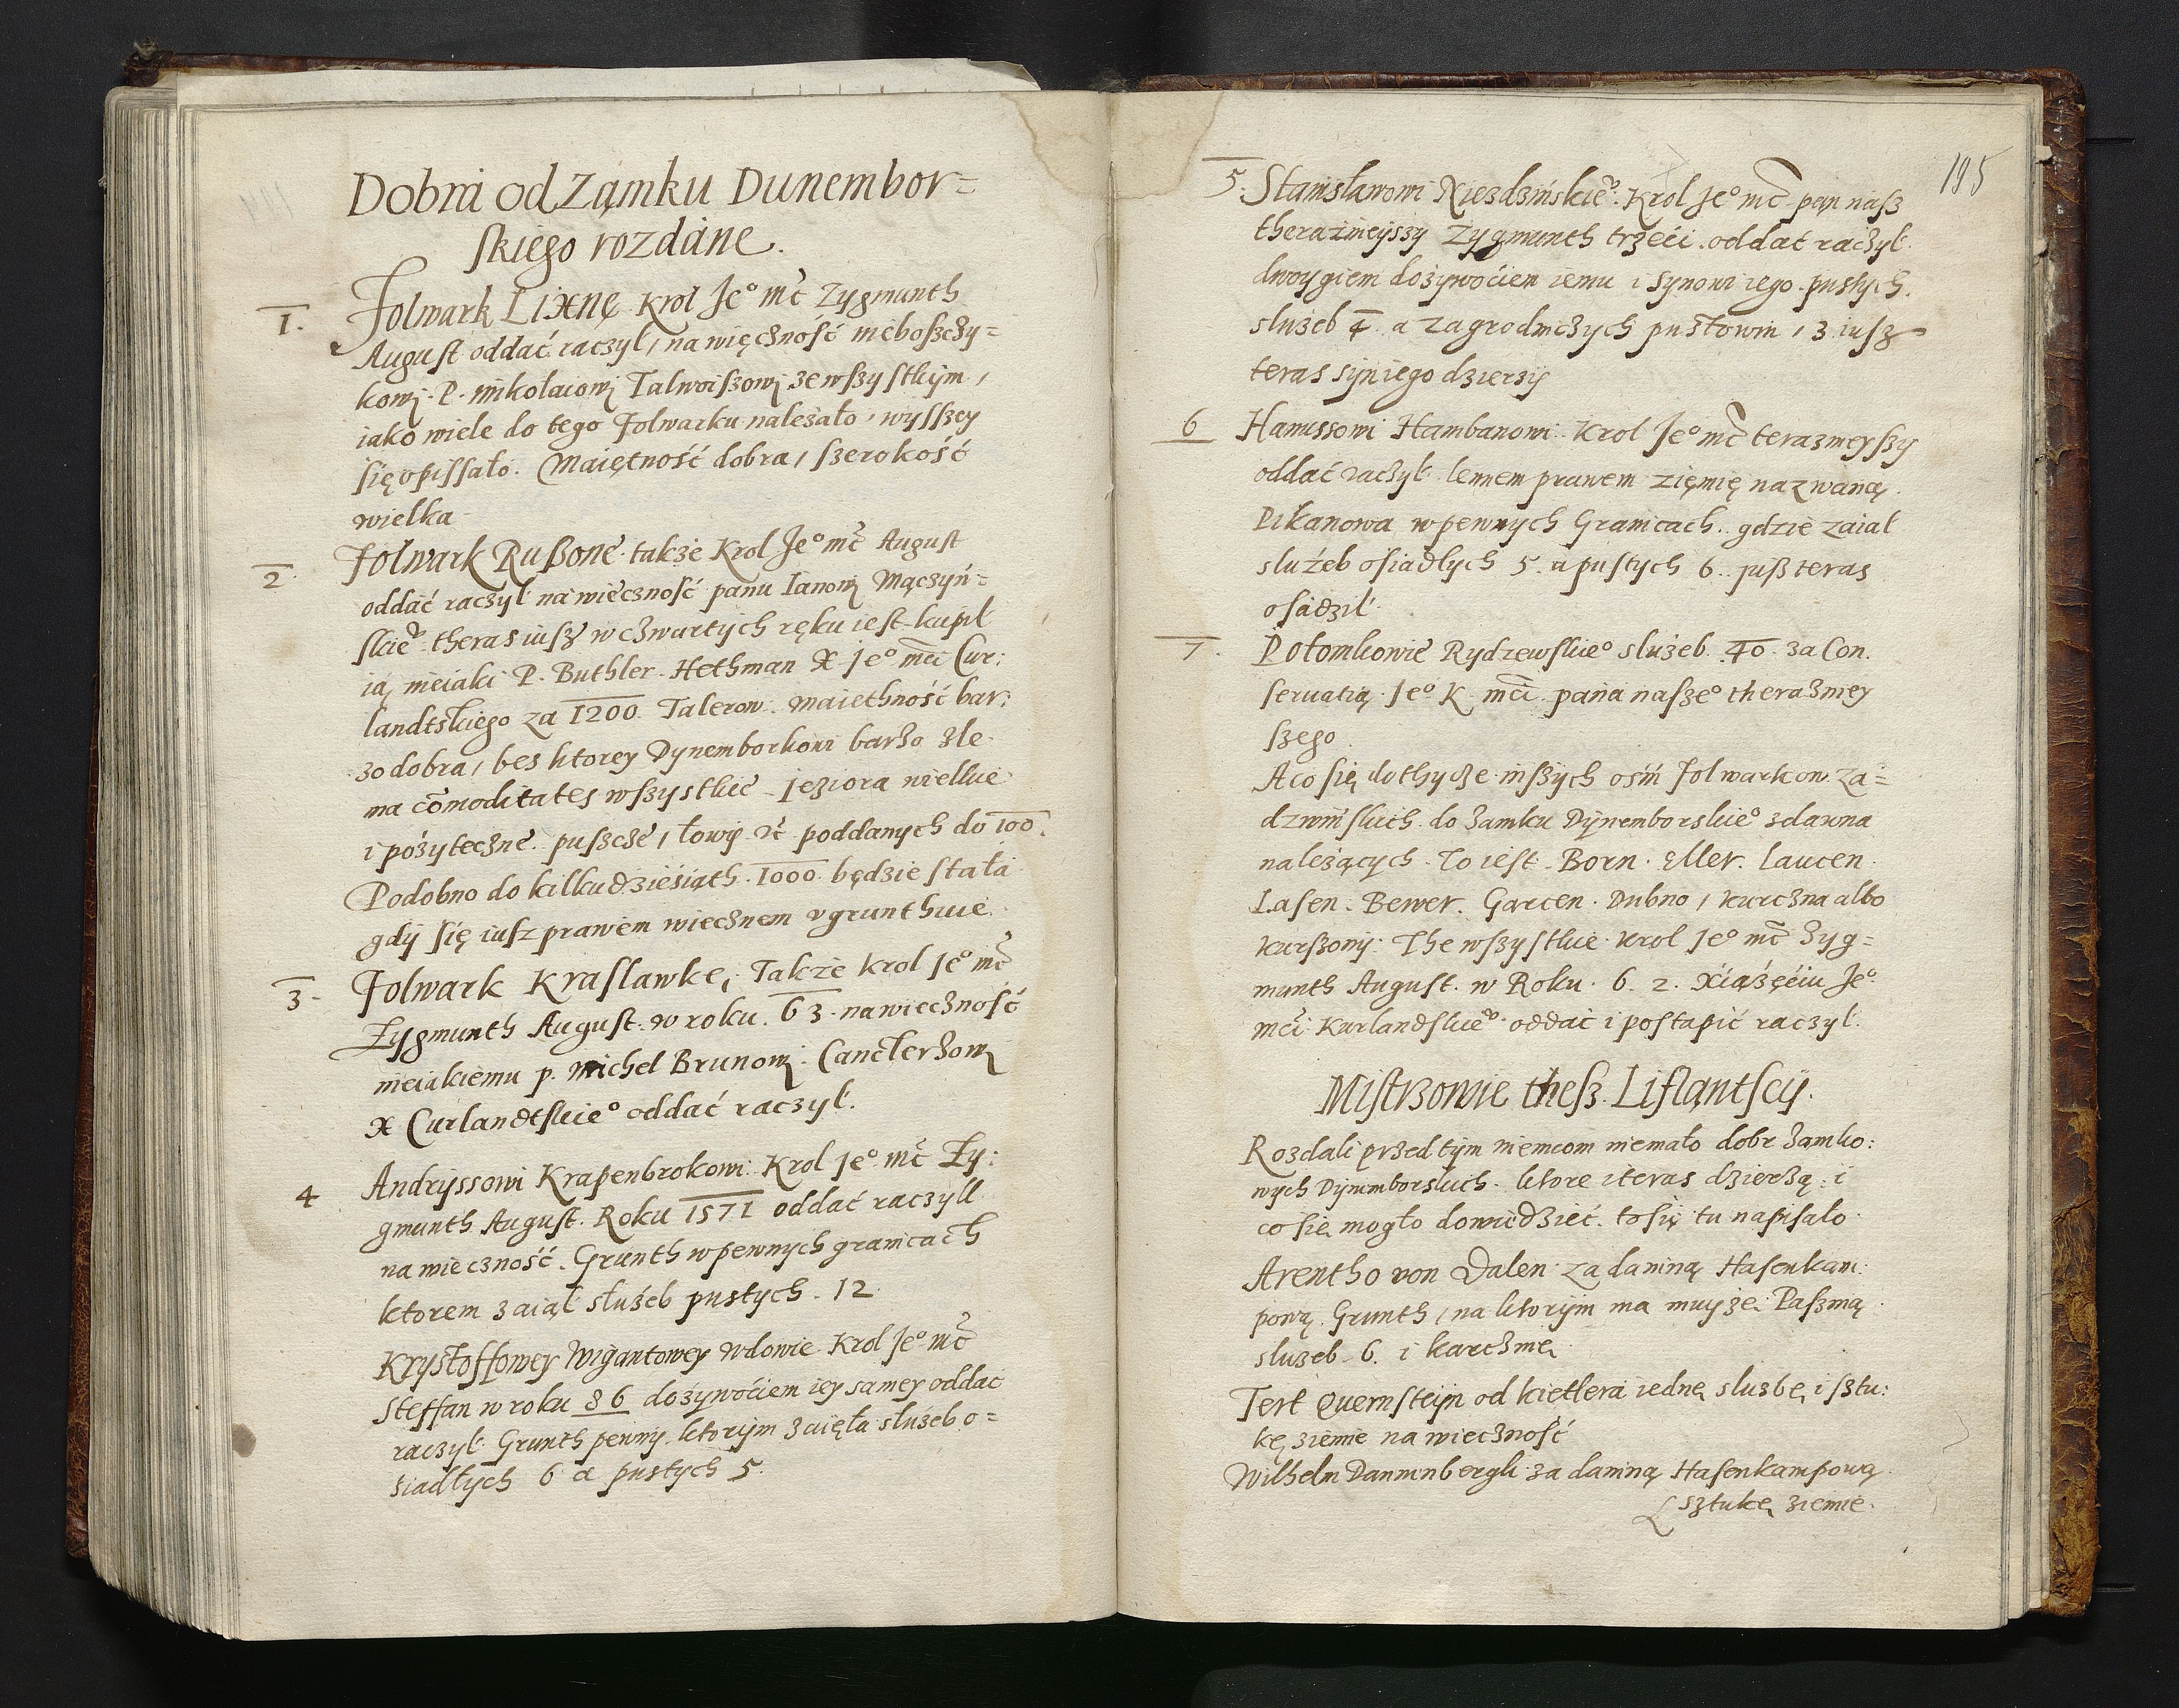 Dobra od Zamku Dunembor=
skiego rozdane.
1. Folwark Lixnę Krol Je° mć Zygmunth
August oddać raczyl, na więczność nieboszczy=
kowi P. Mikołaiowi Talwoiszowi ze wszystkim,
iako wiele do tego Folwarku należało, wysszey
się opissało. Maiętność dobra, szerokość
wielka
2 Folwark Rußone. także Krol Je° mć August
oddać raczył na wieczność panu Ianowi Mączyń=
skie° theras iusz w czwartych ręku iest kupił
ią nieiaki P. Buthler Hethman X Je° mći Cur:
landtskiego za 1200 Talerow. Maiethność bar:
zo dobra, bes ktorey Dynemborkowi barzo zle.
ma cōmoditates wszystkie Jeziora wielkie
i pożyteczne. puszcze, łowy etc poddanych do 100.
Podobno do kilkudziesiąth 1000 będzie stała
gdy się iusz prawem wiecznem vgrunthuie.
3. Folwark Kraslawkę, Także Krol Je° mć
Zygmunth August. w roku. 63. na wieczność
nieiakiemu p. Michel Brunowi Canclerzowi
X Curlandtskie° oddać raczył.
4 Andryssowi Krapenbrokowi Krol Je° mć Zy:
gmunth August. Roku 1571 oddać raczyll
na wieczność. Grunth w pewnych granicach
ktorem zaiął służeb pustych. 12
Krystoffowey Wigantowey wdowie Krol Je° mć
Steffan w roku 86 dożywociem iey samey oddac
raczył Grunth pewny ktorym zaięła służeb o=
siadłych 6 a pustych 5.
195
5. Stanisławowi Niezdzińskie°. Krol Je° mć pan nasz
theraznieyszy Zygmunth trzeci. oddac raczył.
dwoygiem dożywociem iemu i synowi iego. pustych.
służeb 4. a zagrodniczych pustowin, 3 iusz
teras syn iego dzierzy
6 Hanussowi Hambanowi Krol Je° mć teraznieyszy
oddać raczył lennem prawem ziemię nazwaną.
Pikanowa w pewnych Granicach. gdzie zaiał
służeb osiadlych 5. a pustych 6. juß teras
osadził.
7. Potomkowie Rydzewskie° służeb. 40. za Con.
seruatią Je° K mći pana nasze° theraznieỳ
szego
A co się dothycze inszych ośm folwarkow. za=
dzwinskich do zamku Dynemborskie° zdawna
należących. To iest. Born. Eller. Laucen.
Lasen. Bewer. Garcen. Dubno, kurczna albo
kurszony. The wszystkie Krol Je° mć Zyg=
munth August. w Roku. 6. 2. Xiążęciu Je°
mći Kurlandskie° oddać i postąpić raczył.
Mistrzowie thesz. Liflantscy.
Rozdali przed tym niemcom niemało dobr zamko:
wych Dynemborskich. ktore i teras dzierzą: i
co się mogło dowiedzieć. to się tu napisało.
Arentho von Dalen za daniną Hasenkam:
pową. Grunth, na ktorym ma muyże. Paszmą
służeb 6. i karczmę.
Tert Quernsteyn od kietlera iednę służbę i sztu:
kę ziemie na wieczność
Wilhelm Dannenbergk za daniną Hasenkampową
sztukę ziemie.